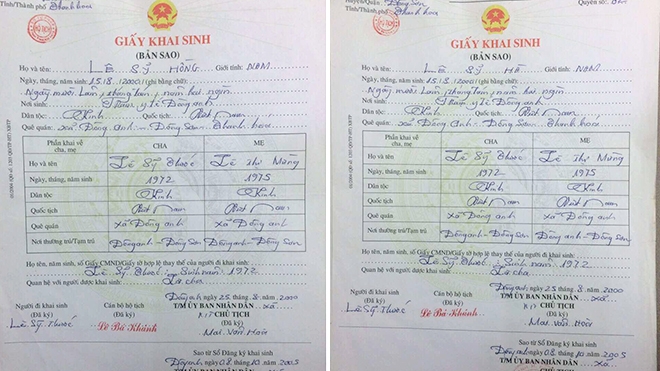 Tỉnh/Thành phố Thanh hoá
GIẤY KHAI SINH
(BẢN SAO)
Họ và tên: LÊ SỸ HỒNG Giới tính: NAM
Ngày, tháng, năm sinh: 15.8.2000 (Ghi bằng chữ):
Ngày mười Lăm, tháng tám, năm hai ngìn
Nơi sinh: Trạm y tế Đông anh
Dân tộc: Kinh Quốc tịch:
Quê quán: xã Đông anh - Đông Sơn - Thanh hoá
Phần khai về cha, mẹ CHA MẸ
Họ và tên Lê Sỹ Thuốc Lê Thị Mừng
Ngày, tháng, năm sinh 1972 1975
Dân tộc Kinh Kinh
Quốc tịch Việt Nam Việt Nam
Quê quán xã Đông anh xã Đông anh
Nơi thường trú/Tạm trú Đông anh - Đông Sơn Đông anh - Đông Sơn
Họ tên, năm sinh, số Giấy CMND/Giấy tờ hợp lệ thay thế của người đi khai sinh:
Lê Sỹ Thuốc Sinh năm 1972
Quan hệ với người được khai sinh: Là cha
Đông anh, ngày 25 tháng 8 năm 2000
Người đi khai sinh Cán bộ hộ tịch T/M ỦY BAN NHÂN DÂN xã
(Đã ký) (Đã ký) CHỦ TỊCH
(Đã ký)
Lê Sỹ Thuốc Lê Bá Khánh Mai Văn Hoà
Sao từ Sổ Đăng ký khai sinh
Đông anh, ngày 08 tháng 10 năm 2005
T/M ỦY BAN NHÂN DÂN xã
CHỦ TỊCH
Huyện/Quận: Đông Sơn Quyển số:
Tỉnh/Thành phố: Thanh hoá
GIẤY KHAI SINH
(BẢN SAO)
Họ và tên: LÊ SỸ HÀ Giới tính: NAM
Ngày, tháng, năm sinh: 15.8.2000 (Ghi bằng chữ):
Ngày mười Lăm, tháng tám, năm hai ngìn
Nơi sinh: Trạm y tế Đông anh
Dân tộc: Kinh Quốc tịch:
Quê quán: xã Đông anh - Đông Sơn - Thanh hoá
Phần khai về cha, mẹ CHA MẸ
Họ và tên Lê Sỹ Thuốc Lê Thị Mừng
Ngày, tháng, năm sinh 1972 1975
Dân tộc Kinh Kinh
Quốc tịch Việt Nam Việt Nam
Quê quán xã Đông anh xã Đông anh
Nơi thường trú/Tạm trú Đông anh - Đông Sơn Đông anh - Đông Sơn
Họ tên, năm sinh, số Giấy CMND/Giấy tờ hợp lệ thay thế của người đi khai sinh:
Lê Sỹ Thuốc Sinh năm 1972
Quan hệ với người được khai sinh: Là cha
Đông anh, ngày 25 tháng 8 năm 2000
Người đi khai sinh Cán bộ hộ tịch T/M ỦY BAN NHÂN DÂN xã
(Đã ký) (Đã ký) CHỦ TỊCH
(Đã ký)
Lê Sỹ Thuốc Lê Bá Khánh Mai Văn Hoà
Sao từ Sổ Đăng ký khai sinh
Đông anh, ngày 08 tháng 10 năm 2005
T/M ỦY BAN NHÂN DÂN xã
CHỦ TỊCH